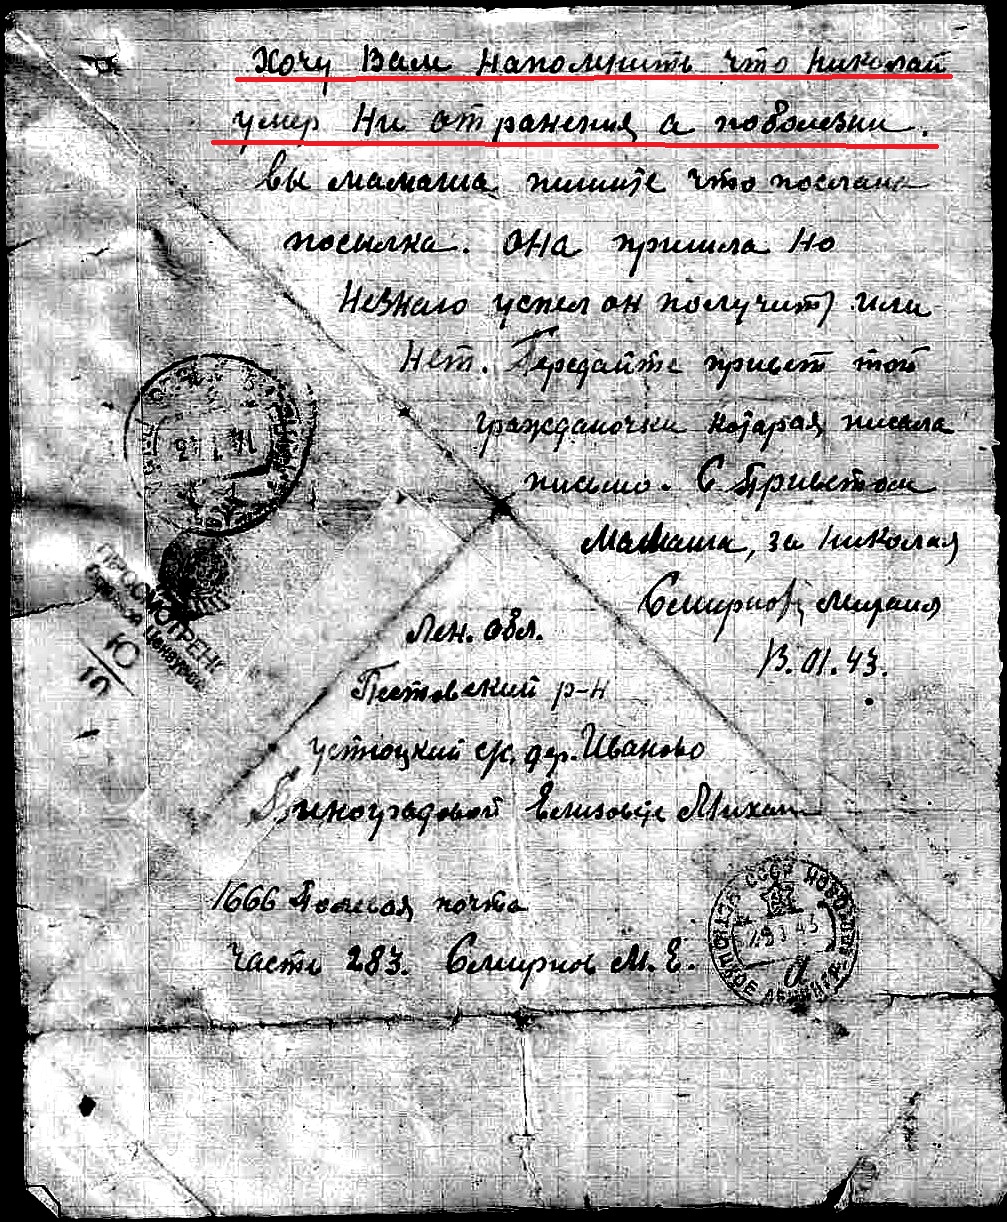 Хочу Вам напомнить что Николай
умер Ни отранения а поболезни.
Вы мамаша пишите что послана
посылка. она пришла но
Незнаю успел он получить или
Нет. Передайте привет той
гражданочки которая писала
письмо. С Приветом
Мамаша, за Николая
Смирнов Михаил
13.01.43.
ПРОСМОТРЕНО
Военной Цензурой
10
Лен. обл.
Пестовский р-н
устюцкий с/с. дер. Иваново
Виноградовой Елизовете Михай
1666 Полевая почта
часть 283. Смирнов М. Е.
СССР
29 1 43